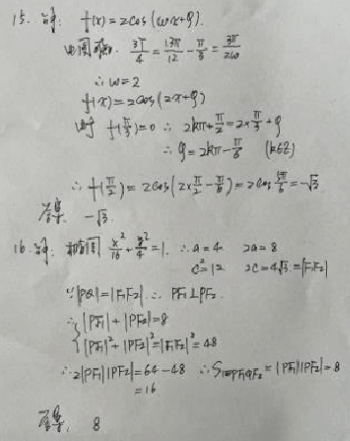 15. 解: f(x)=2cos(ωx+φ).
由图知. 3T/4 = 13π/12 - π/3 = 3π/2ω
∴ ω=2
f(x)=2cos(2x+φ)
由于 f(π/3)=0 ∴ 2kπ+π/2=2×π/3+φ
∴ φ=2kπ-π/6 (k∈Z)
∴ f(π/2)=2cos(2×π/2-π/6)=2cos 5π/6=-√3
答案. -√3.
16. 解: 椭圆 x²/16+y²/4=1. ∴a=4 2a=8
c²=12 2c=4√3=|F₁F₂|
∵|PQ|=|F₁F₂| ∴ PF₁⊥PF₂
∴{|PF₁|+|PF₂|=8
|PF₁|²+|PF₂|²=|F₁F₂|²=48
∴2|PF₁||PF₂|=64-48 ∴S四PF₁QF₂=|PF₁||PF₂|=8
=16
答案. 8